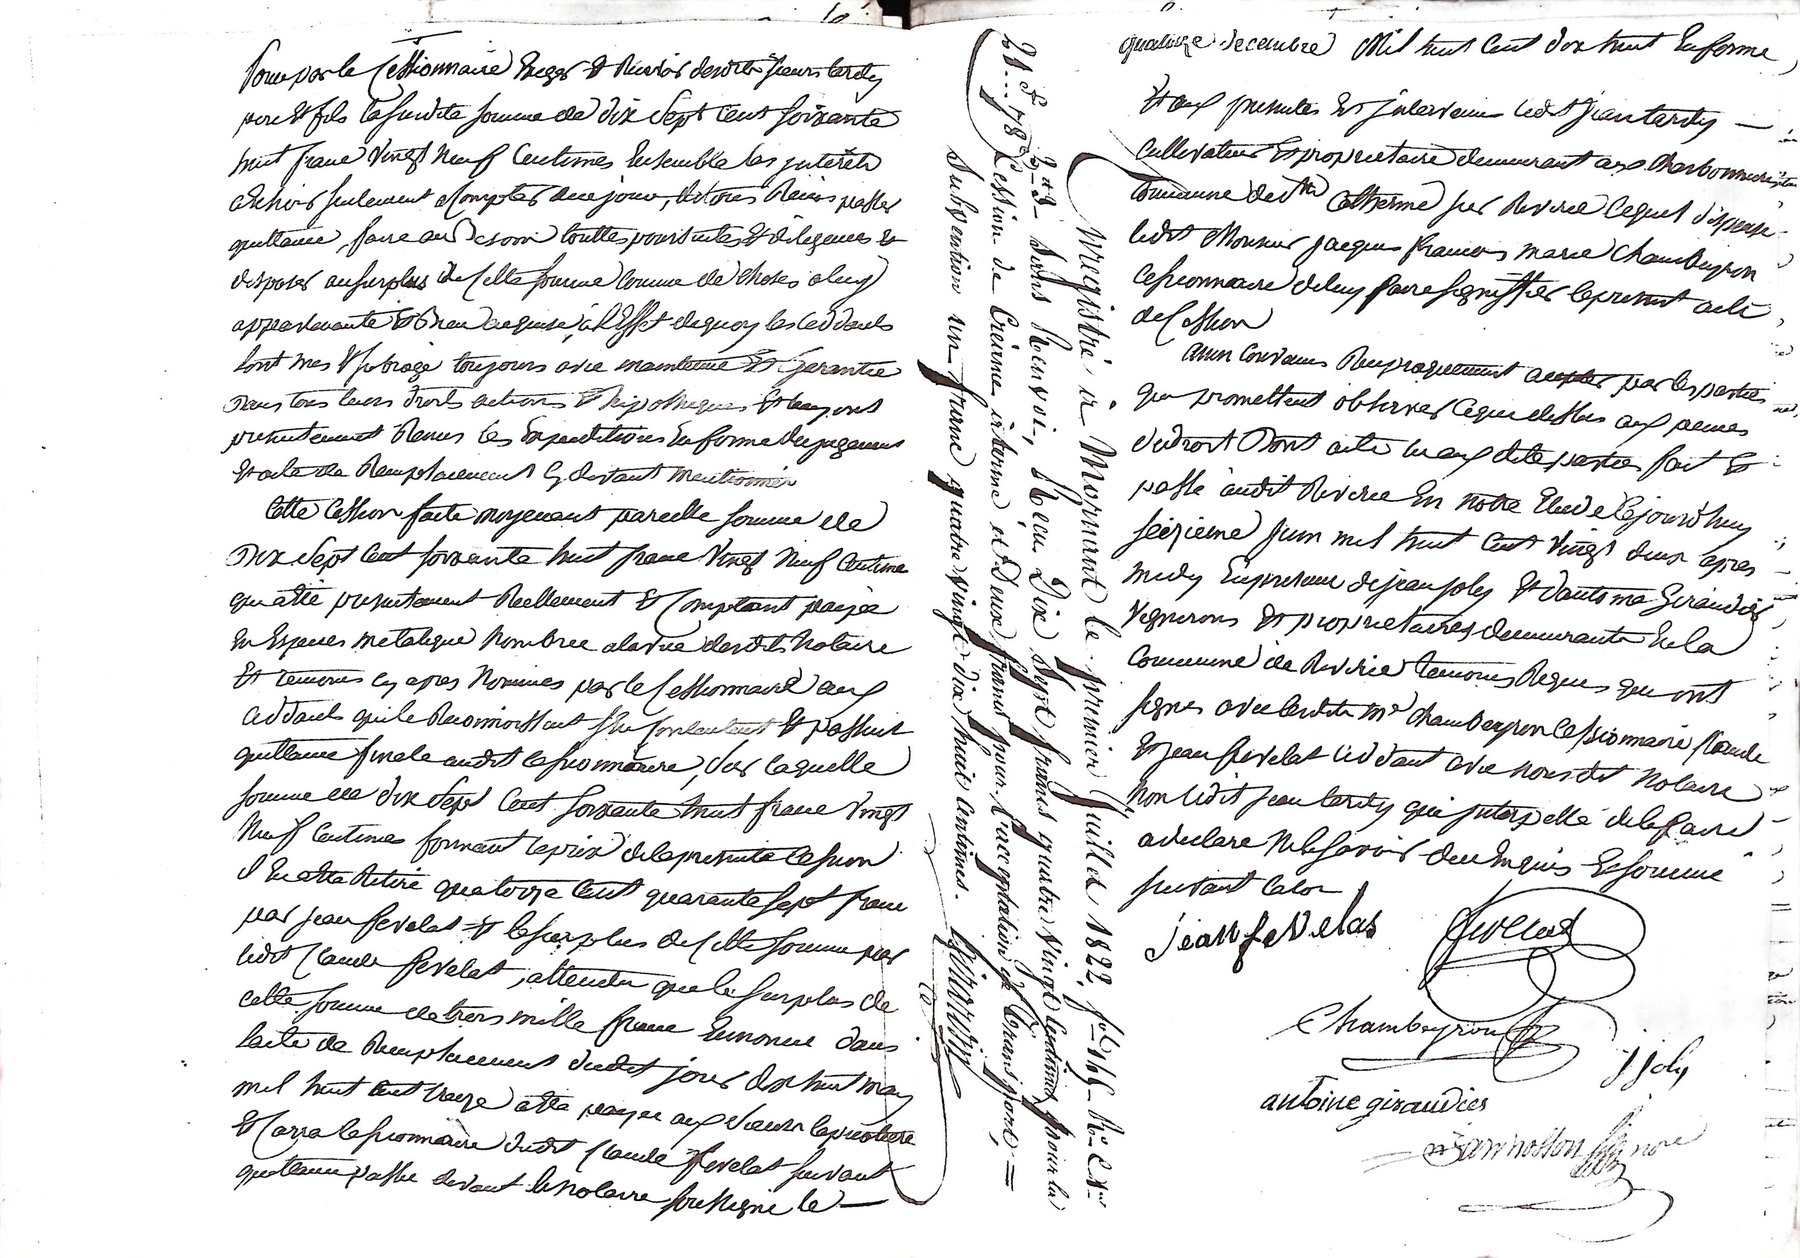 Pour par le Cessionnaire Exiger et Recevoir desdits sieurs tardy
pere et fils la susdite somme de dix sept cent soixante
huit franc vingt neuf Centimes Ensemble les jnterêts
a Echoir seulement a Compter de ce jour, du tout Recus passer
quittance, faire au besoin touttes poursuites et diligences et
disposer au surplus de Cette somme comme de choses a luy
appartenante et bien acquise, a l'Effet de quoy les Ceddants
L'ont mis et subrogé toujours avec maintenue et Garantie
Dans tous leurs droits actions et hipotheques et luy ont
presentement Remis les Expeditions En forme des jugemens
Et acte de Remplacement Cy devant mentionnés
Cette Cession faite moyenant pareille somme de
Dix Sept Cent soixante huit franc vingt neuf Centime
qui a été presentement Reellement et Comptant payée
En Especes metalique Nombrée a la vue desdits Notaire
Et temoins cy apres Nommés par le Cessionnaire aux
Ceddants qui le Reconnoissent s'En Contentent Et passent
quittance finale audit Cessionnaire, sur laquelle
somme de dix sept Cent soixante huit franc vingt
Neuf Centimes formant le prix de la presente Cession
il En a été Retiré quatorze Cent quarante sept franc
par jean fevelat et le surplus de Cette somme par
ledit Claude fevelat, attendu que le surplus de
cette somme de trois mille franc Enoncée dans
l'acte de Remplacement dudit jour dix huit may
mil huit Cent treize a été payée aux sieurs
Et Cessionnaire dudit Claude fevelat suivant
quittance passée devant le Notaire soussigné le —
Enregistré à Mornant le premier Juillet 1822, f° 145 R° C.
2 d° Sans Renvoi, Reçu Dix Sept francs quatre Vingt Centimes pour la
Cession de Créance à terme et Deux francs pour l'acceptation de Transport, =
Subvention un franc quatre Vingt dix huit centimes.
quatorze decembre Mil huit Cent dix huit En forme
Et aux presentes Est jntervenu ledit jean tardy —
Cultivateur Et proprietaire demeurant aux
Commune de Ste Catherine sur Riverie lequel dispense
ledit Monsieur jacques françois marie Chambeyron
Cessionnaire de luy faire signiffier le present acte
de Cession
ainsi Convenu Reciproquement accepter par les parties
qui promettent observer Ce que dessus aux peines
de droit Dont acte lu aux dite parties fait Et
passé audit Riverie En notre Etude Cejourd'huy
seizieme juin mil huit Cent vingt deux apres
midy En presence de jean joly Et d'antoine Giraudier
Vignerons Et proprietaires demeurants En la
Commune de Riverie temoins Requis qui ont
signés avec ledit Mr Chambeyron Cessionnaire, Claude
Et jean fevelat Ceddant avec nous dit Notaire
Non ledit jean tardy qui jnterpellé de le faire
a declaré Ne le Savoir de ce Enquis Et sommé
suivant la loi
jean fevelas
Chambeyron
j joly
antoine giraudier